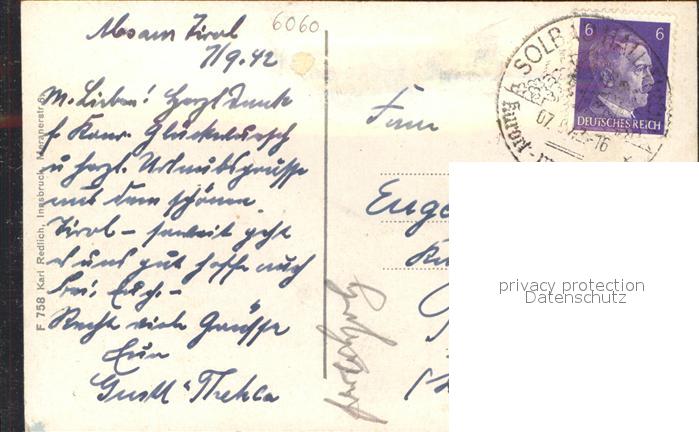 Absam Tirol
6060
7/9.42
M. Lieben! Herzl. Dank
f. Eure Glückwunsch
u herzl. Urlaubsgrüsse
aus dem schönen
Tirol – soweit geht
es uns gut hoffe auch
bei Euch. –
Recht viele Grüsse
Eure
Gustl Thekla
F 758 Karl Redlich, Innsbruck, Meranerstr.
Frau
6 6
DEUTSCHES REICH
SOLBAD HALL
07. 42-16
Kurort
privacy protection
Datenschutz